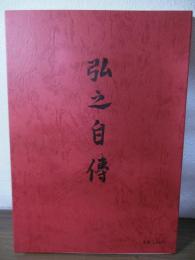 弘之自傳